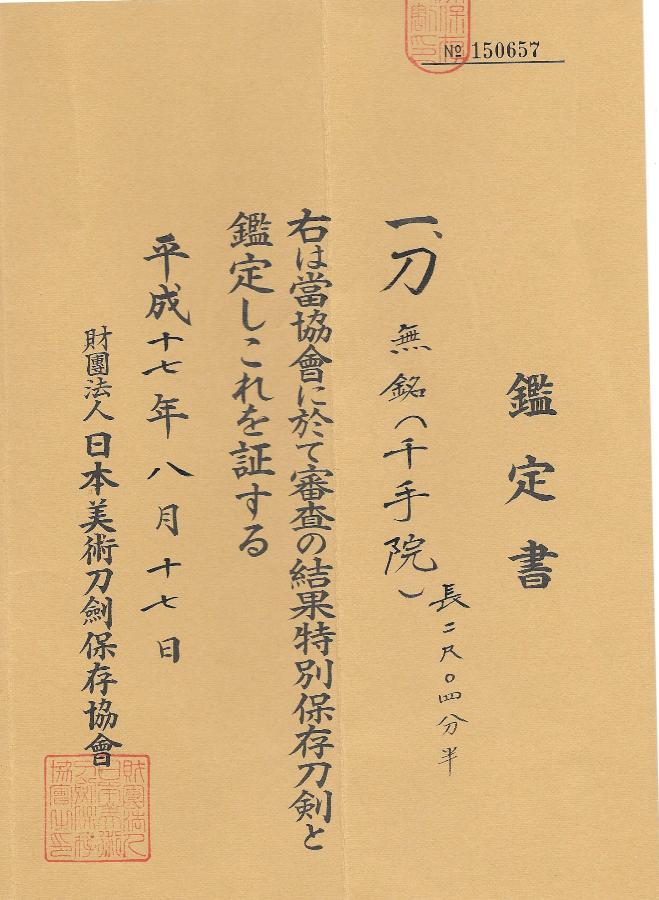 № 150657
鑑定書
一、刀 無銘(千手院)
長二尺〇四分半
右は當協會に於て審査の結果特別保存刀剣と
鑑定しこれを証する
平成十七年八月十七日
財團法人日本美術刀劍保存協會